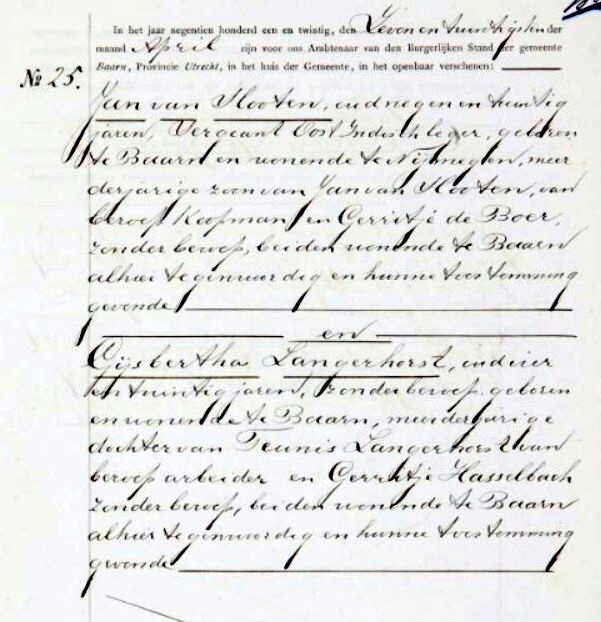 In het jaar negentien honderd een en twintig, den Zeven en twintigsten der
maand April zijn voor ons Ambtenaar van den Burgerlijken Stand der gemeente
Baarn, Provincie Utrecht, in het huis der Gemeente, in het openbaar verschenen:
No 25.
Jan van Slooten, oud negen en twintig
jaren, Sergeant Oost Indisch leger, geboren
te Baarn en wonende te Nijmegen, meer
derjarige zoon van Jan van Slooten, van
beroep Koopman en Gerritje de Boer,
zonder beroep, beiden wonende te Baarn
alhier tegenwoordig en hunne toestemming
gevende
en
Gijsbertha Langerhorst, oud vier
en twintig jaren, zonder beroep, geboren
en wonende te Baarn, meerderjarige
dochter van Teunis Langerhorst van
beroep arbeider en Gerritje Hasselbach
zonder beroep, beiden wonende te Baarn
alhier tegenwoordig en hunne toestemming
gevende